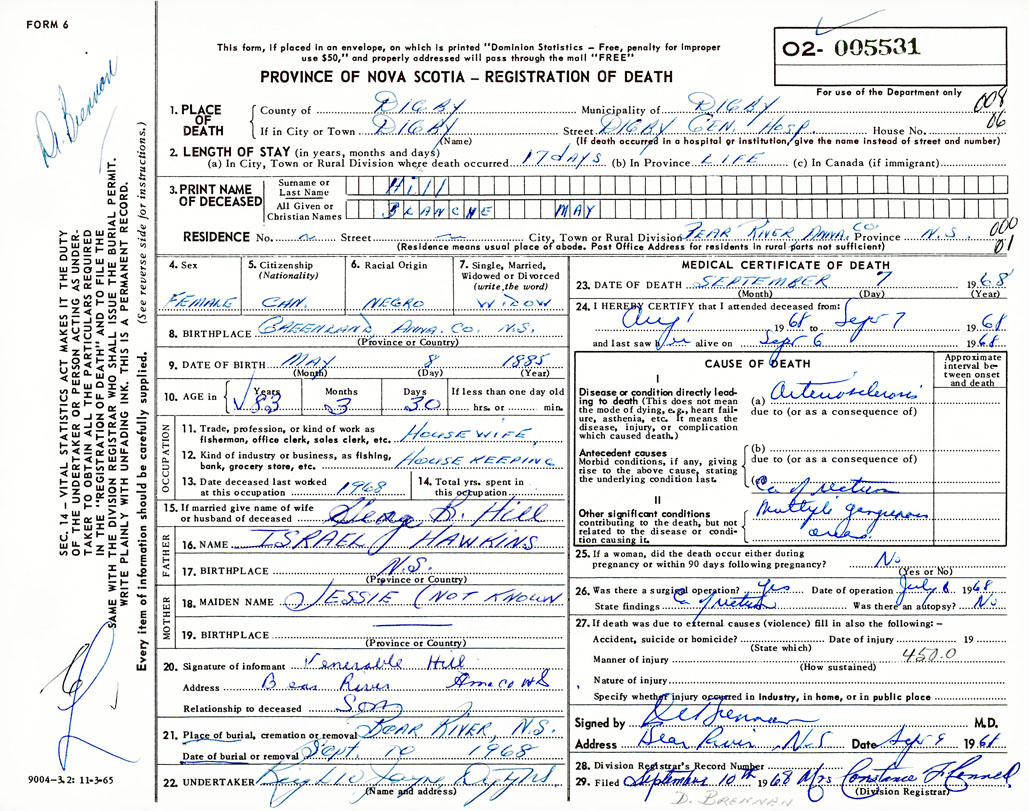 FORM 6
This form, if placed in an envelope, on which is printed "Dominion Statistics – Free, penalty for improper
use $50," and properly addressed will pass through the mail "FREE"
PROVINCE OF NOVA SCOTIA – REGISTRATION OF DEATH
O2- 005531
For use of the Department only
008
06
Dr. Brennan
SEC. 14 – VITAL STATISTICS ACT MAKES IT THE DUTY
OF THE UNDERTAKER OR PERSON ACTING AS UNDER-
TAKER TO OBTAIN ALL THE PARTICULARS REQUIRED
IN THE "REGISTRATION OF DEATH" AND TO FILE THE
SAME WITH THE DIVISION REGISTRAR WHO SHALL ISSUE THE BURIAL PERMIT.
WRITE PLAINLY WITH UNFADING INK. THIS IS A PERMANENT RECORD.
Every item of information should be carefully supplied. (See reverse side for instructions.)
9004-3.2: 11-3-65
1. PLACE OF DEATH
County of DIGBY Municipality of DIGBY
If in City or Town DIGBY Street DIGBY GEN. HOSP. House No.
(Name) (If death occurred in a hospital or institution, give the name instead of street and number)
2. LENGTH OF STAY (in years, months and days)
(a) In City, Town or Rural Division where death occurred 17 days (b) In Province LIFE (c) In Canada (if immigrant)
3. PRINT NAME OF DECEASED
Surname or Last Name Hill
All Given or Christian Names BLANCHE MAY
RESIDENCE No. ~ Street ~ City, Town or Rural Division BEAR RIVER ANNA. CO. Province N.S.
000
01
(Residence means usual place of abode. Post Office Address for residents in rural parts not sufficient)
4. Sex FEMALE
5. Citizenship (Nationality) CAN.
6. Racial Origin NEGRO
7. Single, Married, Widowed or Divorced (write the word) WIDOW
8. BIRTHPLACE GREENLAND ANNA. CO. N.S.
(Province or Country)
9. DATE OF BIRTH MAY 8 1885
(Month) (Day) (Year)
10. AGE in Years 83 Months 3 Days 30 If less than one day old hrs. or min.
OCCUPATION
11. Trade, profession, or kind of work as fisherman, office clerk, sales clerk, etc. HOUSEWIFE
12. Kind of industry or business, as fishing, bank, grocery store, etc. HOUSE KEEPING
13. Date deceased last worked at this occupation 1968
14. Total yrs. spent in this occupation
15. If married give name of wife or husband of deceased George B. Hill
FATHER
16. NAME ISRAEL J HAWKINS
17. BIRTHPLACE N.S.
(Province or Country)
MOTHER
18. MAIDEN NAME JESSIE (NOT KNOWN
19. BIRTHPLACE
(Province or Country)
20. Signature of informant Venerable Hill
Address Bear River Anna co NS
Relationship to deceased Son
21. Place of burial, cremation or removal BEAR RIVER, N.S.
Date of burial or removal Sept. 10 1968
22. UNDERTAKER
(Name and address)
MEDICAL CERTIFICATE OF DEATH
23. DATE OF DEATH SEPTEMBER 7 1968
(Month) (Day) (Year)
24. I HEREBY CERTIFY that I attended deceased from:
Aug 1 1968 to Sept 7 1968
and last saw her alive on Sept 6 1968
CAUSE OF DEATH
Approximate interval between onset and death
I
Disease or condition directly leading to death (This does not mean the mode of dying, e.g., heart failure, asthenia, etc. It means the disease, injury, or complication which caused death.)
(a) Arteriosclerosis
due to (or as a consequence of)
Antecedent causes
Morbid conditions, if any, giving rise to the above cause, stating the underlying condition last.
(b)
due to (or as a consequence of)
(c)
II
Other significant conditions contributing to the death, but not related to the disease or condition causing it.
Ca of rectum
Multiple gangrenous
areas.
25. If a woman, did the death occur either during pregnancy or within 90 days following pregnancy? No
(Yes or No)
26. Was there a surgical operation? Yes Date of operation July 8 1968
State findings Ca of rectum Was there an autopsy? No
27. If death was due to external causes (violence) fill in also the following: –
Accident, suicide or homicide? Date of injury 19
(State which)
Manner of injury 450.0
(How sustained)
Nature of injury
Specify whether injury occurred in industry, in home, or in public place
Signed by Brennan M.D.
Address Bear River, N.S Date Sept 9 1968
28. Division Registrar's Record Number
29. Filed September 10th 1968 Mrs Constance
(Division Registrar)
D. BRENNAN